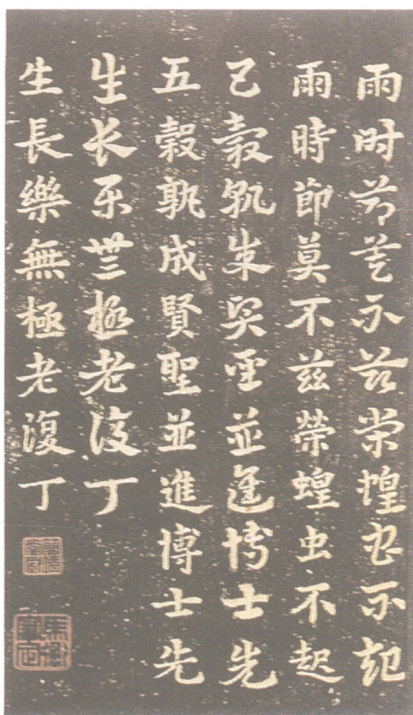 雨時節莫不兹榮蝗虫不起
雨時節莫不兹榮蝗虫不起
五穀孰成賢聖並進博士先
五穀孰成賢聖並進博士先
生長樂無極老復丁
生長樂無極老復丁